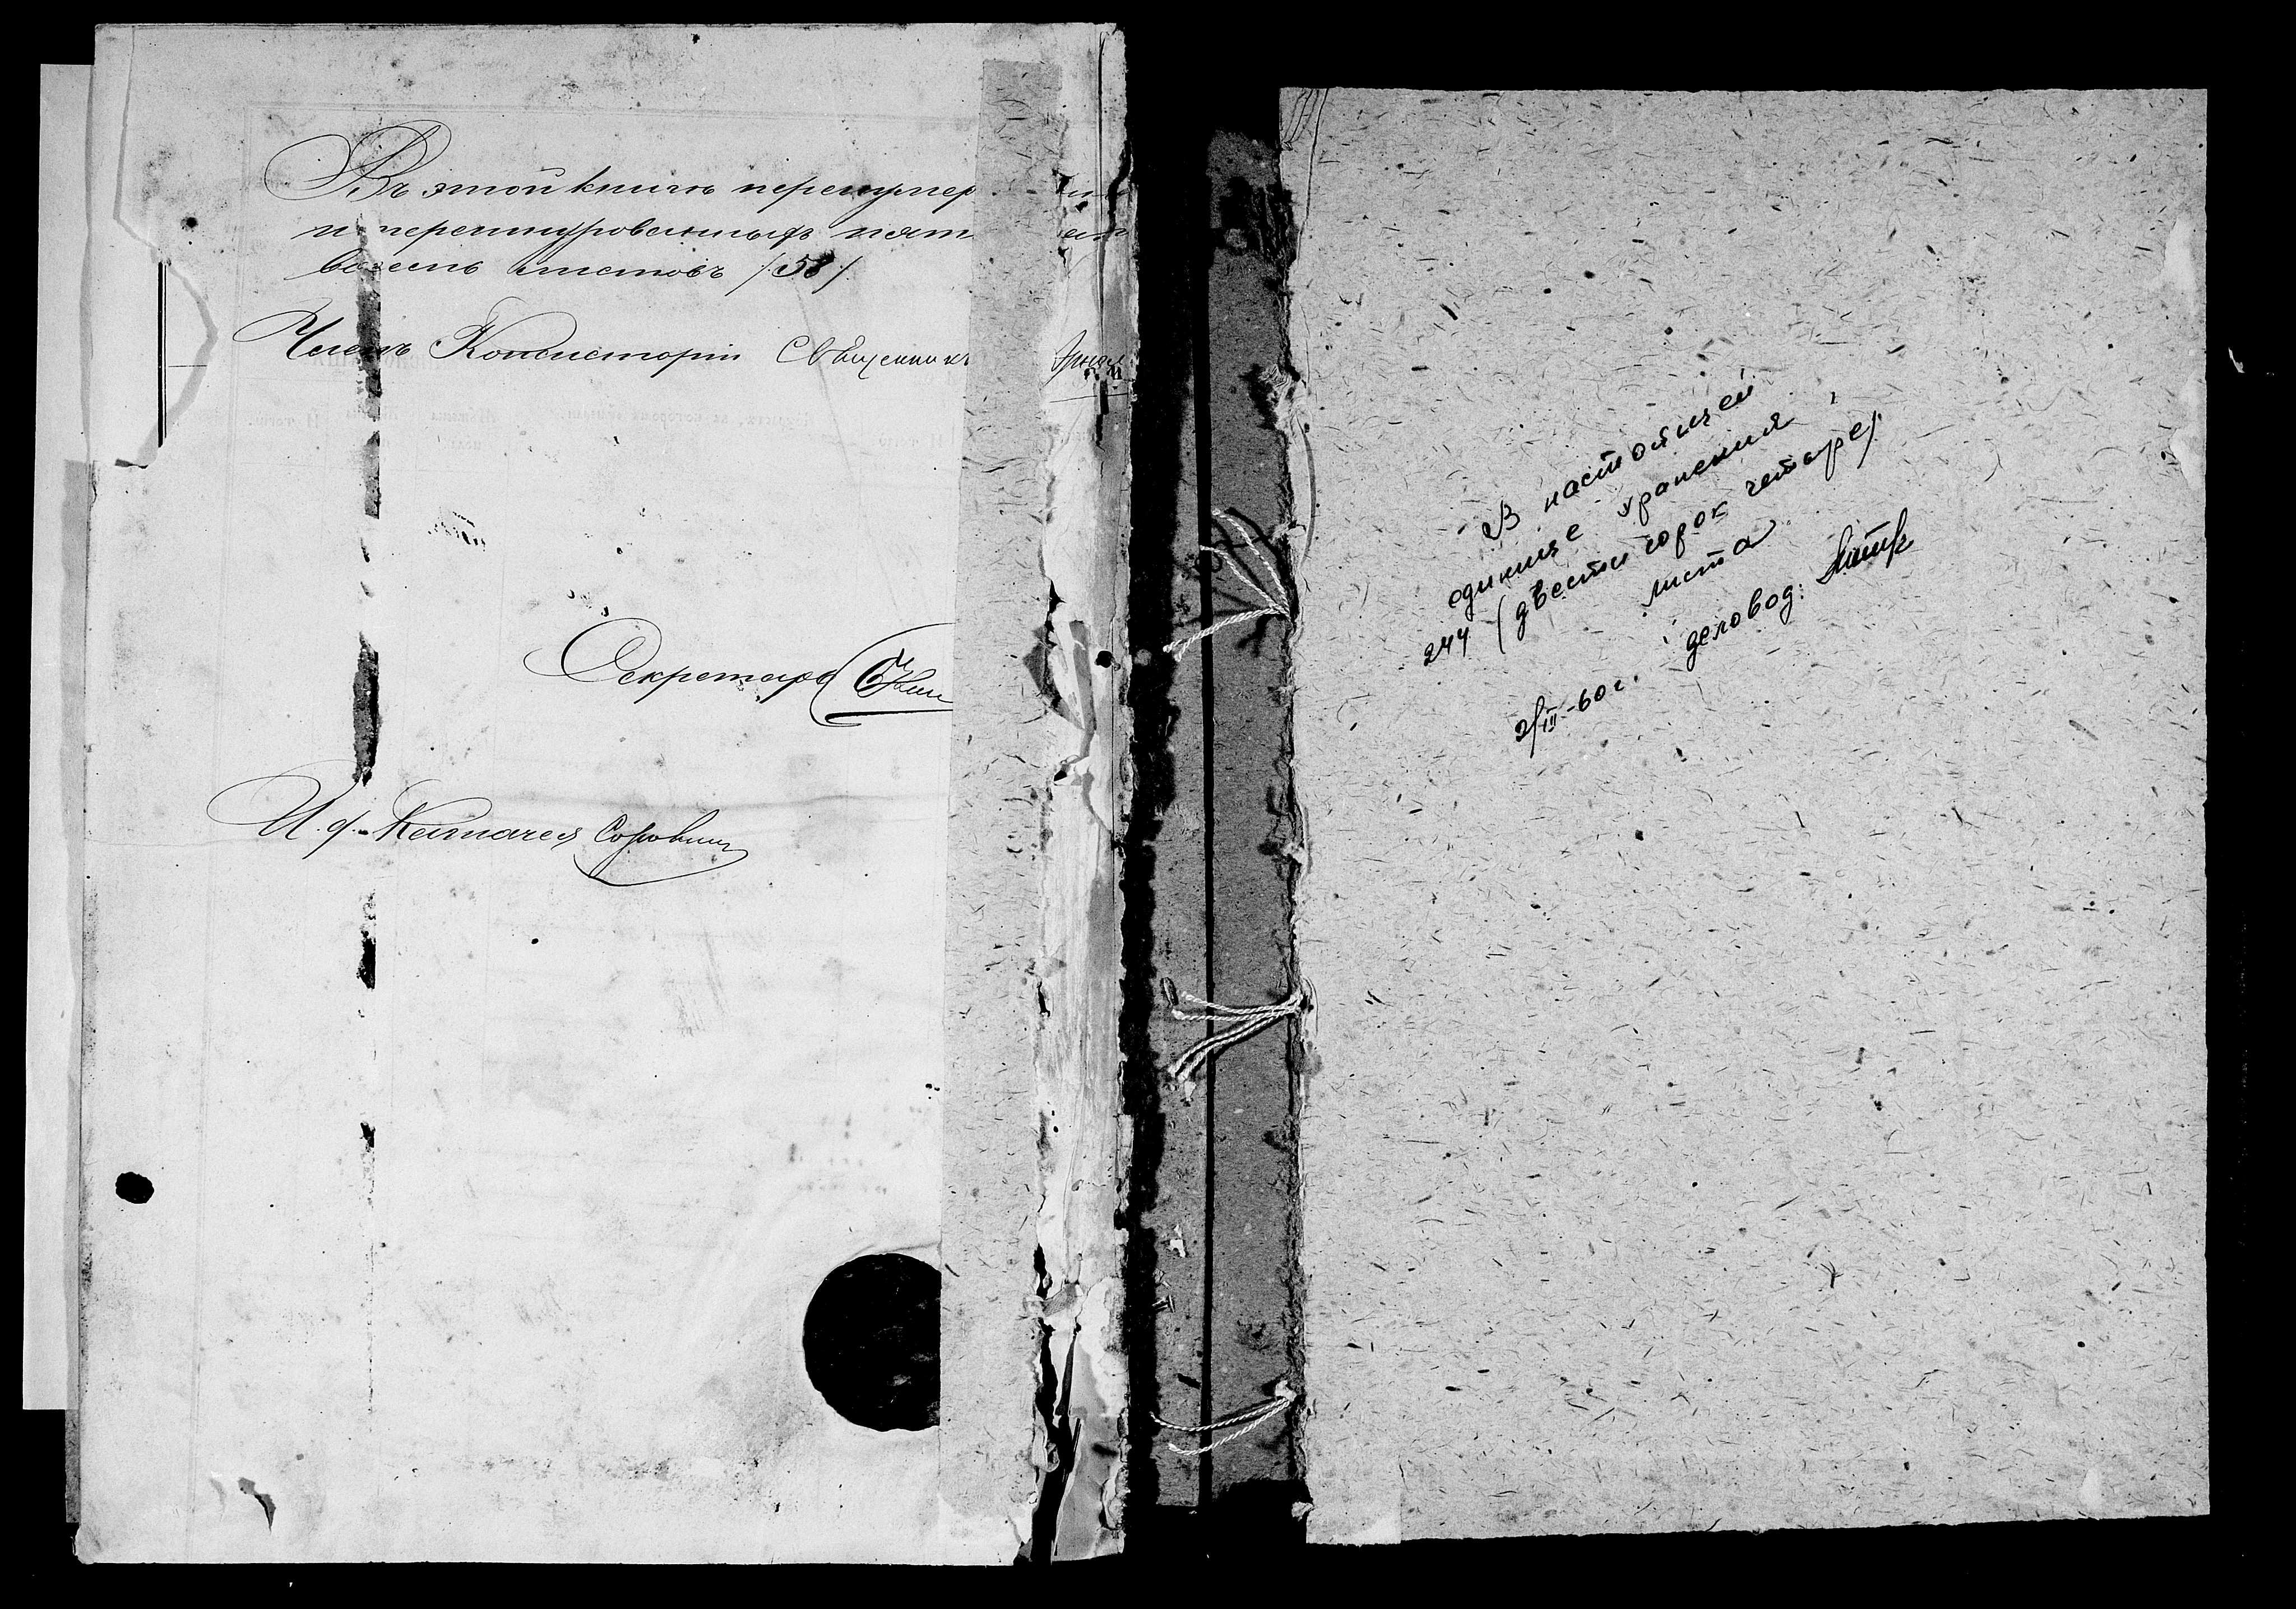 Въ этой книгѣ перенумер
и перешнурованныхъ пят
восемь листовъ /58/.
Членъ Консисторіи Священникъ
Секретарь
И. д. Казначея
В настоящей
единице хранения
244 (двести сорок четыре)
листа
деловод:
2/III-60 г.